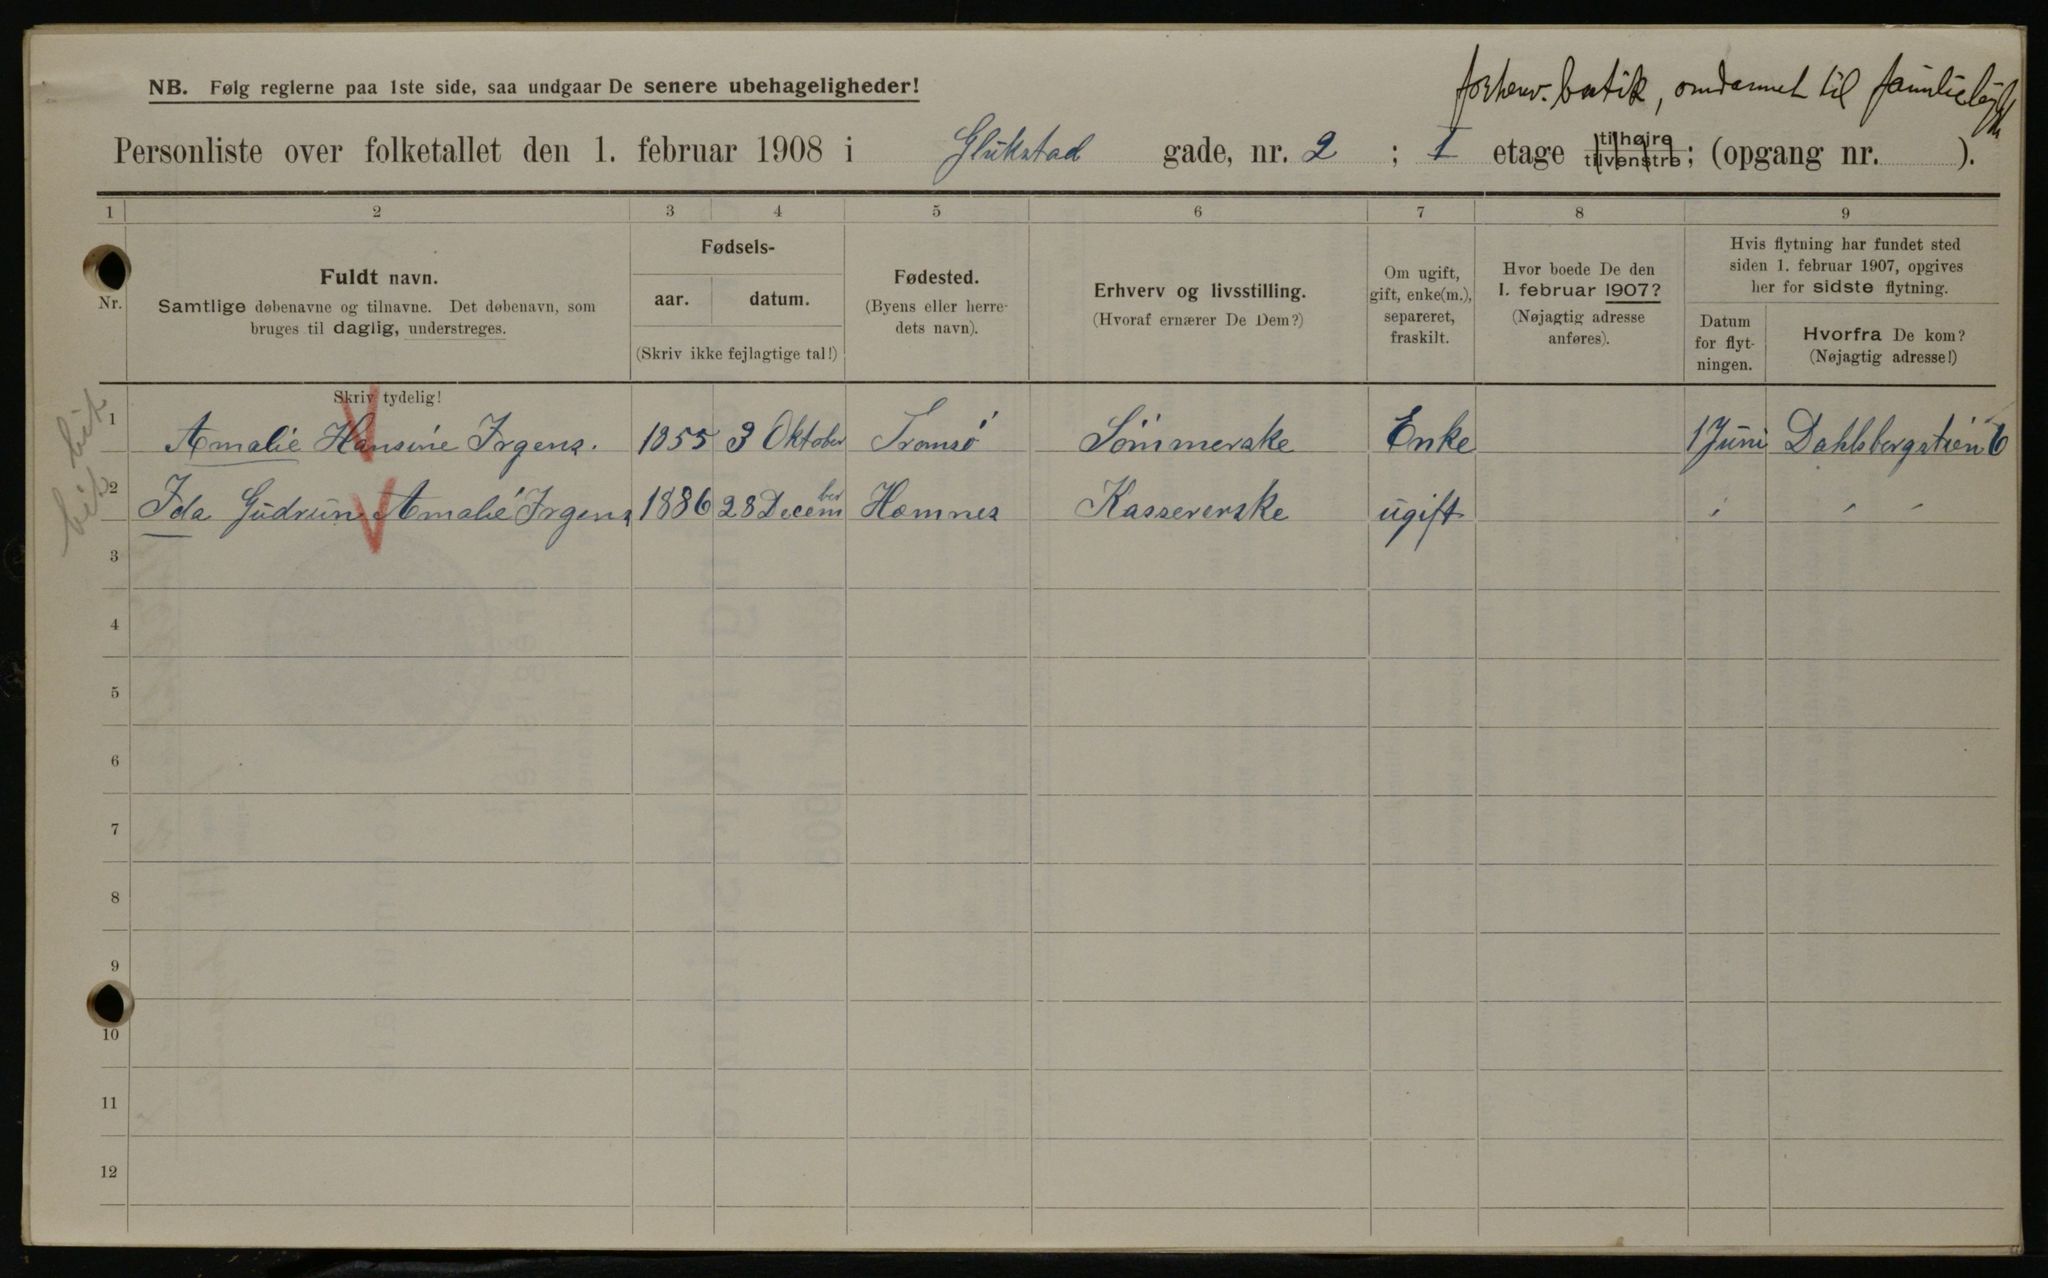 forhenv. butik, omdannet til familielejl.
NB. Følg reglerne paa 1ste side, saa undgaar De senere ubehageligheder!
Personliste over folketallet den 1. februar 1908 i Glukstad gade, nr. 2 ; 1 etage tilhøjre tilvenstre; (opgang nr. ).
1 2 3 4 5 6 7 8 9
Nr.
Fuldt navn.
Samtlige døbenavne og tilnavne. Det døbenavn, som
bruges til daglig, understreges.
Fødsels-
aar. datum.
(Skriv ikke fejlagtige tal!)
Fødested.
(Byens eller herre-
dets navn).
Erhverv og livsstilling.
(Hvoraf ernærer De Dem?)
Om ugift,
gift, enke(m.),
separeret,
fraskilt.
Hvor boede De den
1. februar 1907?
(Nøjagtig adresse
anføres).
Hvis flytning har fundet sted
siden 1. februar 1907, opgives
her for sidste flytning.
Datum
for flyt-
ningen.
Hvorfra De kom?
(Nøjagtig adresse!)
Skriv tydelig!
1 Amalie Hansine Irgens. 1855 3 Oktober Tromsö Sömmerske Enke 1 Juni Dahlsbergstien 6
2 Ida Gudrun Amalie Irgens 1886 28 December Hemnes Kassererske ugift " " "
3
4
5
6
7
8
9
10
11
12